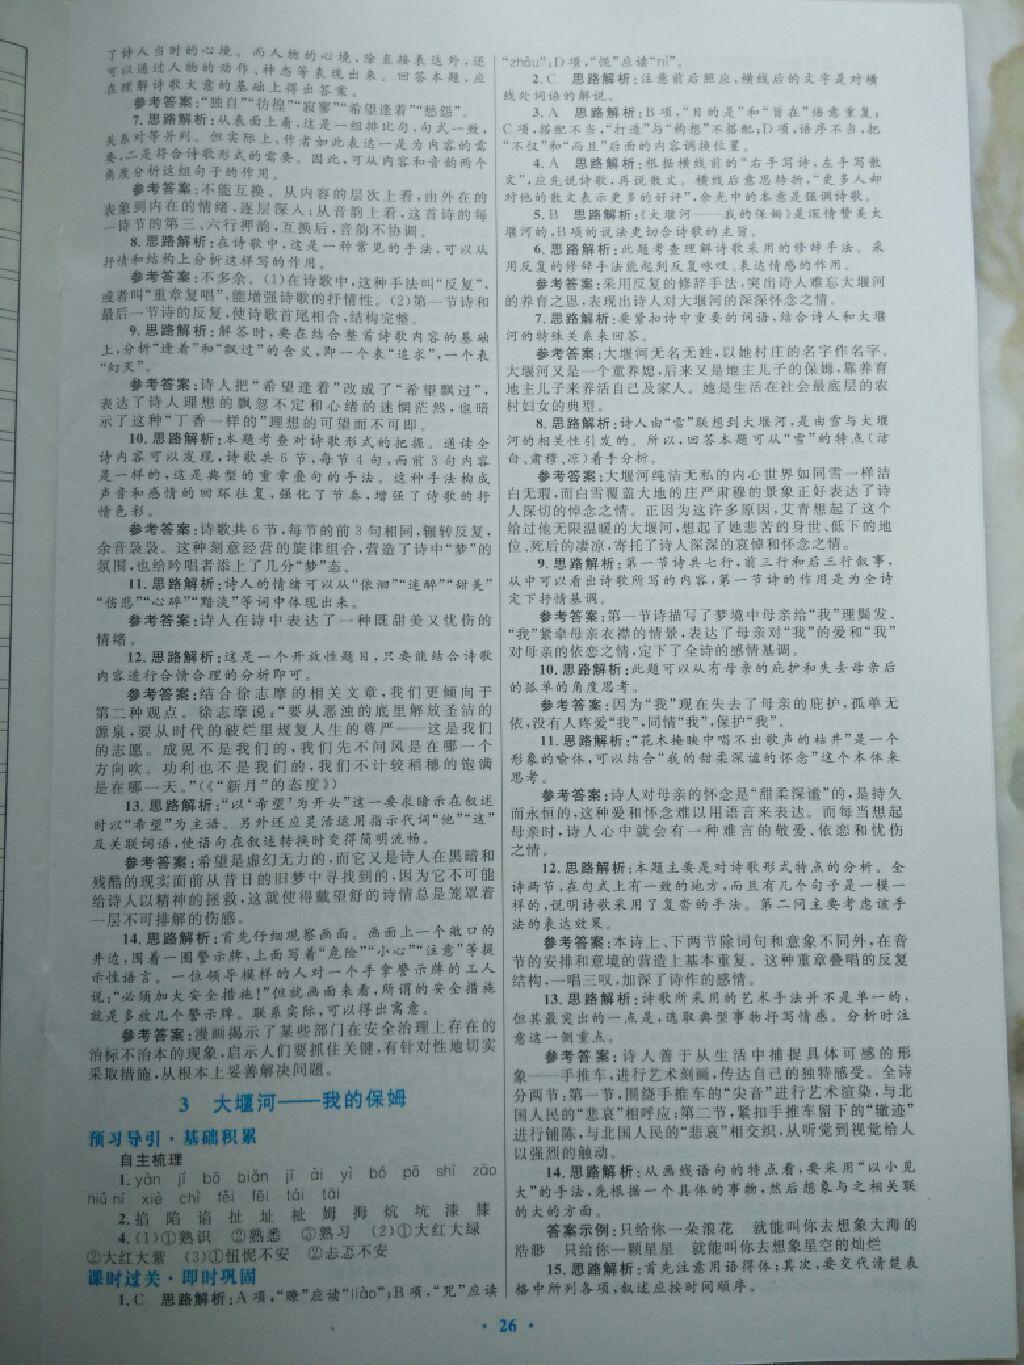 了诗人当时的心境。而人物的心境,除直接表达外,还
可以通过人物的动作、神态等表现出来。回答本题,应
在理解诗歌大意的基础上得出答案。
参考答案:“独自”“彷徨”“寂寞”“希望逢着”“愁怨”。
7. 思路解析:从表面上看,这是一组排比句,句式一致,
关系对等并列。但实际上,作者如此表达一是为内容的需
要,二是符合诗歌形式的需要。因此,可从内容和音的两个
角度分析这组句子的作用。
参考答案:不能互换。从内容的层次上看,由外在的
表象到内在的情绪,逐层深入;从音韵上看,这首诗的每
一诗节的第三、六行押韵,互换后,音韵不协调。
8. 思路解析:在诗歌中,这是一种常见的手法,可以从
抒情和结构上分析这样写的作用。
参考答案:不多余。(1)在诗歌中,这种手法叫“反复”,
或者叫“重章复唱”,能增强诗歌的抒情性。(2)第一节诗和
最后一节诗的反复,使诗歌首尾相合,结构完整。
9. 思路解析:解答时,要在结合整首诗歌内容的基础
上,分析“逢着”和“飘过”的含义,即一个表“追求”,一个表
“幻灭”。
参考答案:诗人把“希望逢着”改成了“希望飘过”,
表达了诗人理想的飘忽不定和心绪的迷惘茫然,也暗
示了这种“丁香一样的”理想的可望而不可即。
10. 思路解析:本题考查对诗歌形式的把握。通读全
诗内容可以发现,诗歌共6节,每节4句,而前3句内容
是一样的,这是典型的重章叠句的手法。这种手法构成
声音和感情的回环往复,强化了节奏,增强了诗歌的抒
情色彩。
参考答案:诗歌共6节,每节的前3句相同,辗转反复,
余音袅袅。这种刻意经营的旋律组合,营造了诗中“梦”的
氛围,也给吟唱者添上了几分“梦”态。
11. 思路解析:诗人的情绪可以从“依洄”“迷醉”“甜美”
“伤悲”“心碎”“黯淡”等词中体现出来。
参考答案:诗人在诗中表达了一种既甜美又忧伤的
情绪。
12. 思路解析:这是一个开放性题目,只要能结合诗歌
内容进行合情合理的分析即可。
参考答案:结合徐志摩的相关文章,我们更倾向于
第二种观点。徐志摩说:“要从恶浊的底里解放圣洁的
源泉,要从时代的破烂里规复人生的尊严——这是我们
的志愿。成见不是我们的,我们先不问风是在哪一个
方向吹。功利也不是我们的,我们不计较稻穗的饱满
是在哪一天。”(《“新月”的态度》)
13. 思路解析:“以‘希望’为开头”这一要求暗示在叙述
时以“希望”为主语。另外还应灵活运用指示代词“他”“这”
及关联词语,使语句在叙述转换时变得简明流畅。
参考答案:希望是虚幻无力的,而它又是诗人在黑暗和
残酷的现实面前从昔日的旧梦中寻找到的,因为它不可能
给诗人以精神的拯救,这就使得戴望舒的诗情总是笼罩着
一层不可排解的伤感。
14. 思路解析:首先仔细观察画面。画面上一个敞口的
井边,围着一圈警示牌,上面写着“危险”“小心”“注意”等提
示性语言。一位领导模样的人对一个手拿警示牌的工人
说:“必须加大安全措施!”但就画面来看,所谓的安全措施
就是多放几个警示牌。联系实际,可以得出寓意。
参考答案:漫画揭示了某些部门在安全治理上存在的
治标不治本的现象,启示人们要抓住关键,有针对性地切实
采取措施,从根本上妥善解决问题。
3 大堰河——我的保姆
预习导引·基础积累
自主梳理
1. yàn jǐ bō biǎn jī ài yì bó pō shì zāo
niǔ ní xiè chì fěi fēi tái tāi
2. 掐 陷 谄 扯 址 祉 姆 拇 炕 坑 漆 膝
4. (1)①熟识 ②熟悉 ③熟习 (2)①大红大绿
②大红大紫 (3)①忸怩不安 ②忐忑不安
课时过关·即时巩固
1. C 思路解析:A项,“瞭”应读“liào”;B项,“咒”应读
“zhòu”;D项,“怩”应读“ní”。
2. C 思路解析:注意前后照应,横线后的文字是对横
线处词语的解说。
3. A 思路解析:B项,“目的是”和“旨在”语意重复;
C项,搭配不当,“打造”与“构想”不搭配;D项,语序不当,把
“不仅”和“而且”后面的内容调换位置。
4. A 思路解析:根据横线前的“右手写诗,左手写散
文”,应先说诗歌,再说散文。横线后意思转折,“更多人却
对他的散文表示更多的好评”,余光中的本意是强调诗歌。
5. B 思路解析:《大堰河——我的保姆》是深情赞美大
堰河的,B项的说法更切合诗歌的主旨。
6. 思路解析:此题考查理解诗歌采用的修辞手法。采
用反复的修辞手法能起到反复咏叹、表达情感的作用。
参考答案:采用反复的修辞手法,突出诗人难忘大堰河
的养育之恩,表现出诗人对大堰河的深深怀念之情。
7. 思路解析:要紧扣诗中重要的词语,结合诗人和大堰
河的特殊关系来回答。
参考答案:大堰河无名无姓,以她村庄的名字作名字。
大堰河又是一个童养媳,后来又是地主儿子的保姆,靠养育
地主儿子来养活自己及家人。她是生活在社会最底层的农
村妇女的典型。
8. 思路解析:诗人由“雪”联想到大堰河,是由雪与大堰
河的相关性引发的。所以,回答本题可从“雪”的特点(洁
白、肃穆、凉)着手分析。
参考答案:大堰河纯洁无私的内心世界如同雪一样洁
白无瑕,而白雪覆盖大地的庄严肃穆的景象正好表达了诗
人深切的悼念之情。正因为这许多原因,艾青想起了这个
给过他无限温暖的大堰河,想起了她悲苦的身世、低下的地
位、死后的凄凉,寄托了诗人深深的哀悼和怀念之情。
9. 思路解析:第一节诗共七行,前三行和后三行叙事,
从中可以看出诗歌所写的内容,第一节诗的作用是为全诗
定下抒情基调。
参考答案:第一节诗描写了梦境中母亲给“我”理鬓发、
“我”紧牵母亲衣襟的情景,表达了母亲对“我”的爱和“我”
对母亲的依恋之情,定下了全诗的感情基调。
10. 思路解析:此题可以从有母亲的庇护和失去母亲后
的孤单的角度思考。
参考答案:因为“我”现在失去了母亲的庇护,孤单无
依,没有人疼爱“我”,同情“我”,保护“我”。
11. 思路解析:“花木掩映中唱不出歌声的枯井”是一个
形象的喻体,可以结合“我的甜柔深谧的怀念”这个本体来
思考。
参考答案:诗人对母亲的怀念是“甜柔深谧”的,是持久
而永恒的,这种爱和怀念难以用语言来表达。而每当想起
母亲时,诗人心中就会有一种难言的敬爱、依恋和忧伤
之情。
12. 思路解析:本题主要是对诗歌形式特点的分析。全
诗两节,在句式上有一致的地方,而且有几个句子是一模一
样的,说明诗歌采用了复沓的手法。第二问主要考虑该手
法的表达效果。
参考答案:本诗上、下两节除词句和意象不同外,在音
节的安排和意境的营造上基本重复。这种重章叠唱的反复
结构,一唱三叹,加深了诗作的感情。
13. 思路解析:诗歌所采用的艺术手法并不是单一的,
但其最突出的一点是,选取典型事物抒写情感。分析时注
意这一侧重点。
参考答案:诗人善于从生活中捕捉具体可感的形
象——手推车,进行艺术刻画,传达自己的独特感受。全诗
分两节:第一节,围绕手推车的“尖音”进行艺术渲染,与北
国人民的“悲哀”相呼应;第二节,紧扣手推车留下的“辙迹”
进行铺陈,与北国人民的“悲哀”相交织,从听觉到视觉给人
以强烈的触动。
14. 思路解析:从画线语句的特点看,要采用“以小见
大”的手法,先根据一个具体的事物,然后想象与之相关联
的大的方面。
答案示例:只给你一朵浪花 就能叫你去想象大海的
浩渺 只给你一颗星星 就能叫你去想象星空的灿烂
15. 思路解析:首先注意用语得体;其次,要交代清楚表
格中所列各项,叙述应按时间顺序。
·26·